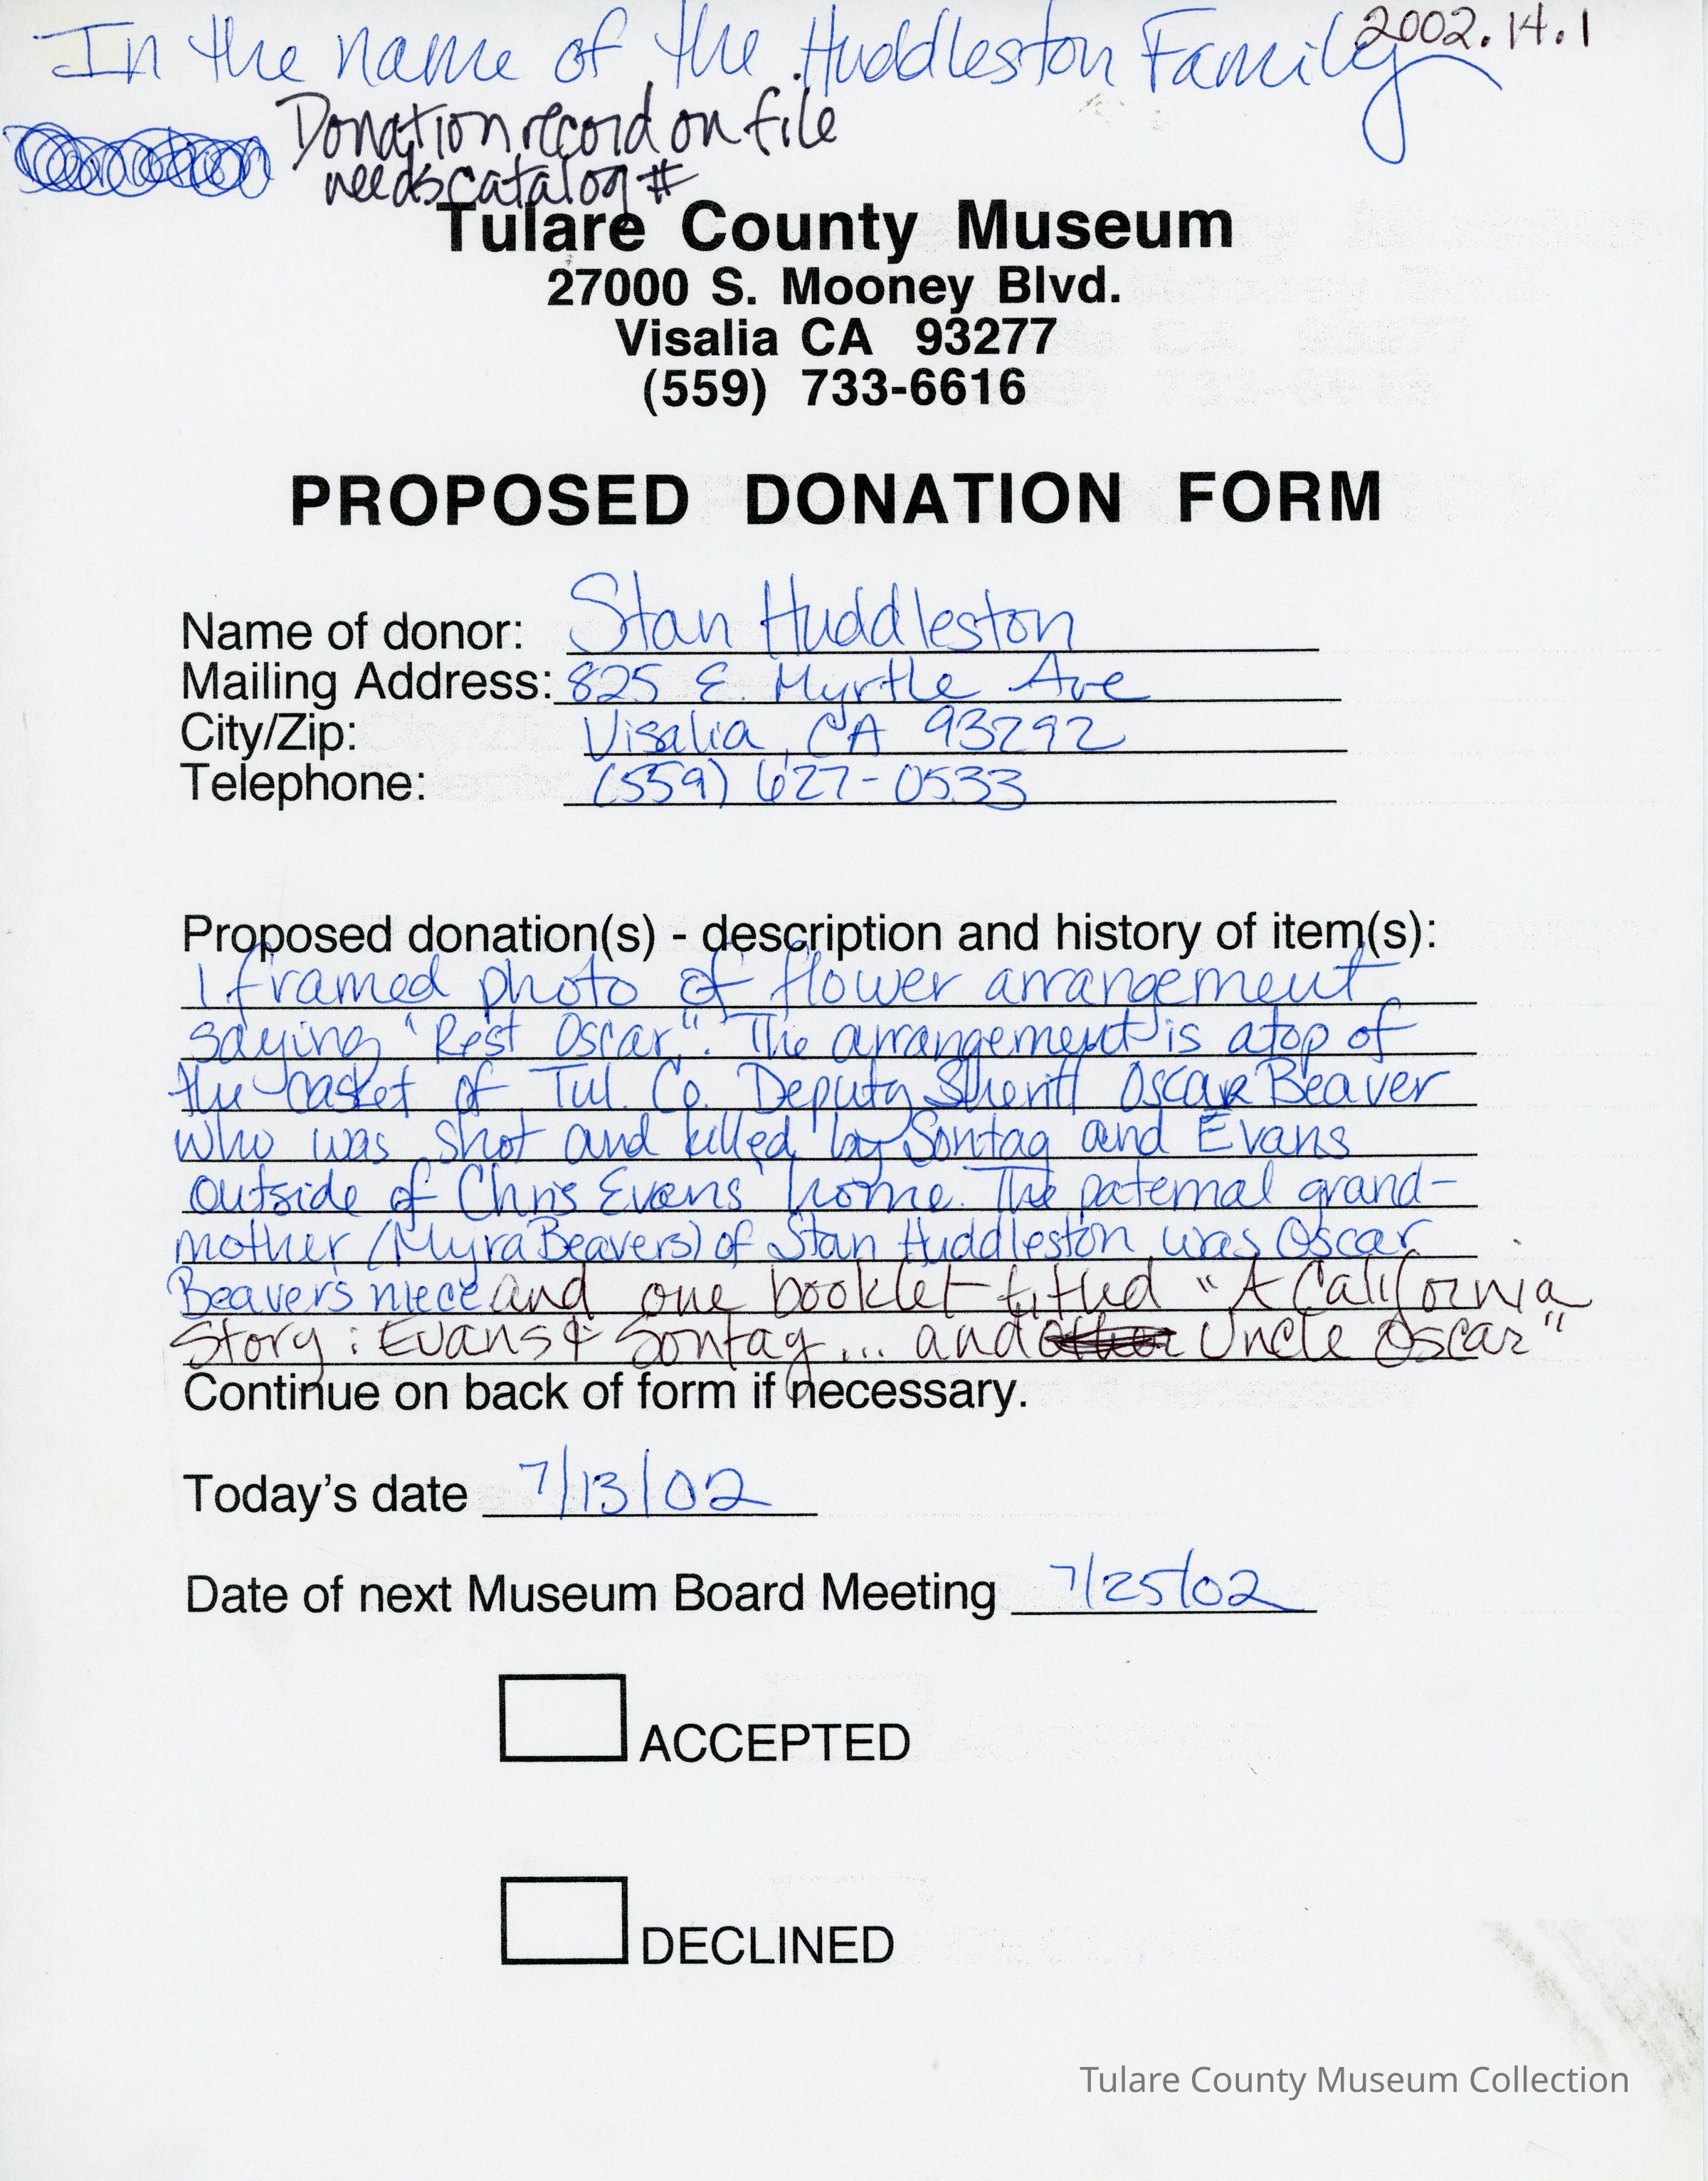 In the name of the Huddleston Family 2002.14.1
Donation record on file
needs catalog #
Tulare County Museum
27000 S. Mooney Blvd.
Visalia CA 93277
(559) 733-6616
PROPOSED DONATION FORM
Name of donor: Stan Huddleston
Mailing Address: 825 E. Myrtle Ave
City/Zip: Visalia, CA 93292
Telephone: (559) 627-0533
Proposed donation(s) - description and history of item(s):
1 framed photo of flower arrangement
saying "Rest Oscar". The arrangement is atop of
the casket of Tul. Co. Deputy Sheriff Oscar Beaver
who was shot and killed by Sontag and Evans
outside of Chris Evans' home. The paternal grand-
mother (Myra Beavers) of Stan Huddleston was Oscar
Beaver's niece and one booklet titled "A California
Story: Evans & Sontag... and Uncle Oscar"
Continue on back of form if necessary.
Today's date 7/13/02
Date of next Museum Board Meeting 7/25/02
ACCEPTED
DECLINED
Tulare County Museum Collection